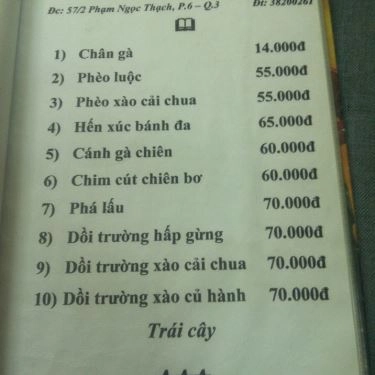 Đc: 57/2 Phạm Ngọc Thạch, P.6 – Q.3 Đt: 38200261
1) Chân gà 14.000đ
2) Phèo luộc 55.000đ
3) Phèo xào cải chua 55.000đ
4) Hến xúc bánh đa 65.000đ
5) Cánh gà chiên 60.000đ
6) Chim cút chiên bơ 60.000đ
7) Phá lấu 70.000đ
8) Dồi trường hấp gừng 70.000đ
9) Dồi trường xào cải chua 70.000đ
10) Dồi trường xào củ hành 70.000đ
Trái cây